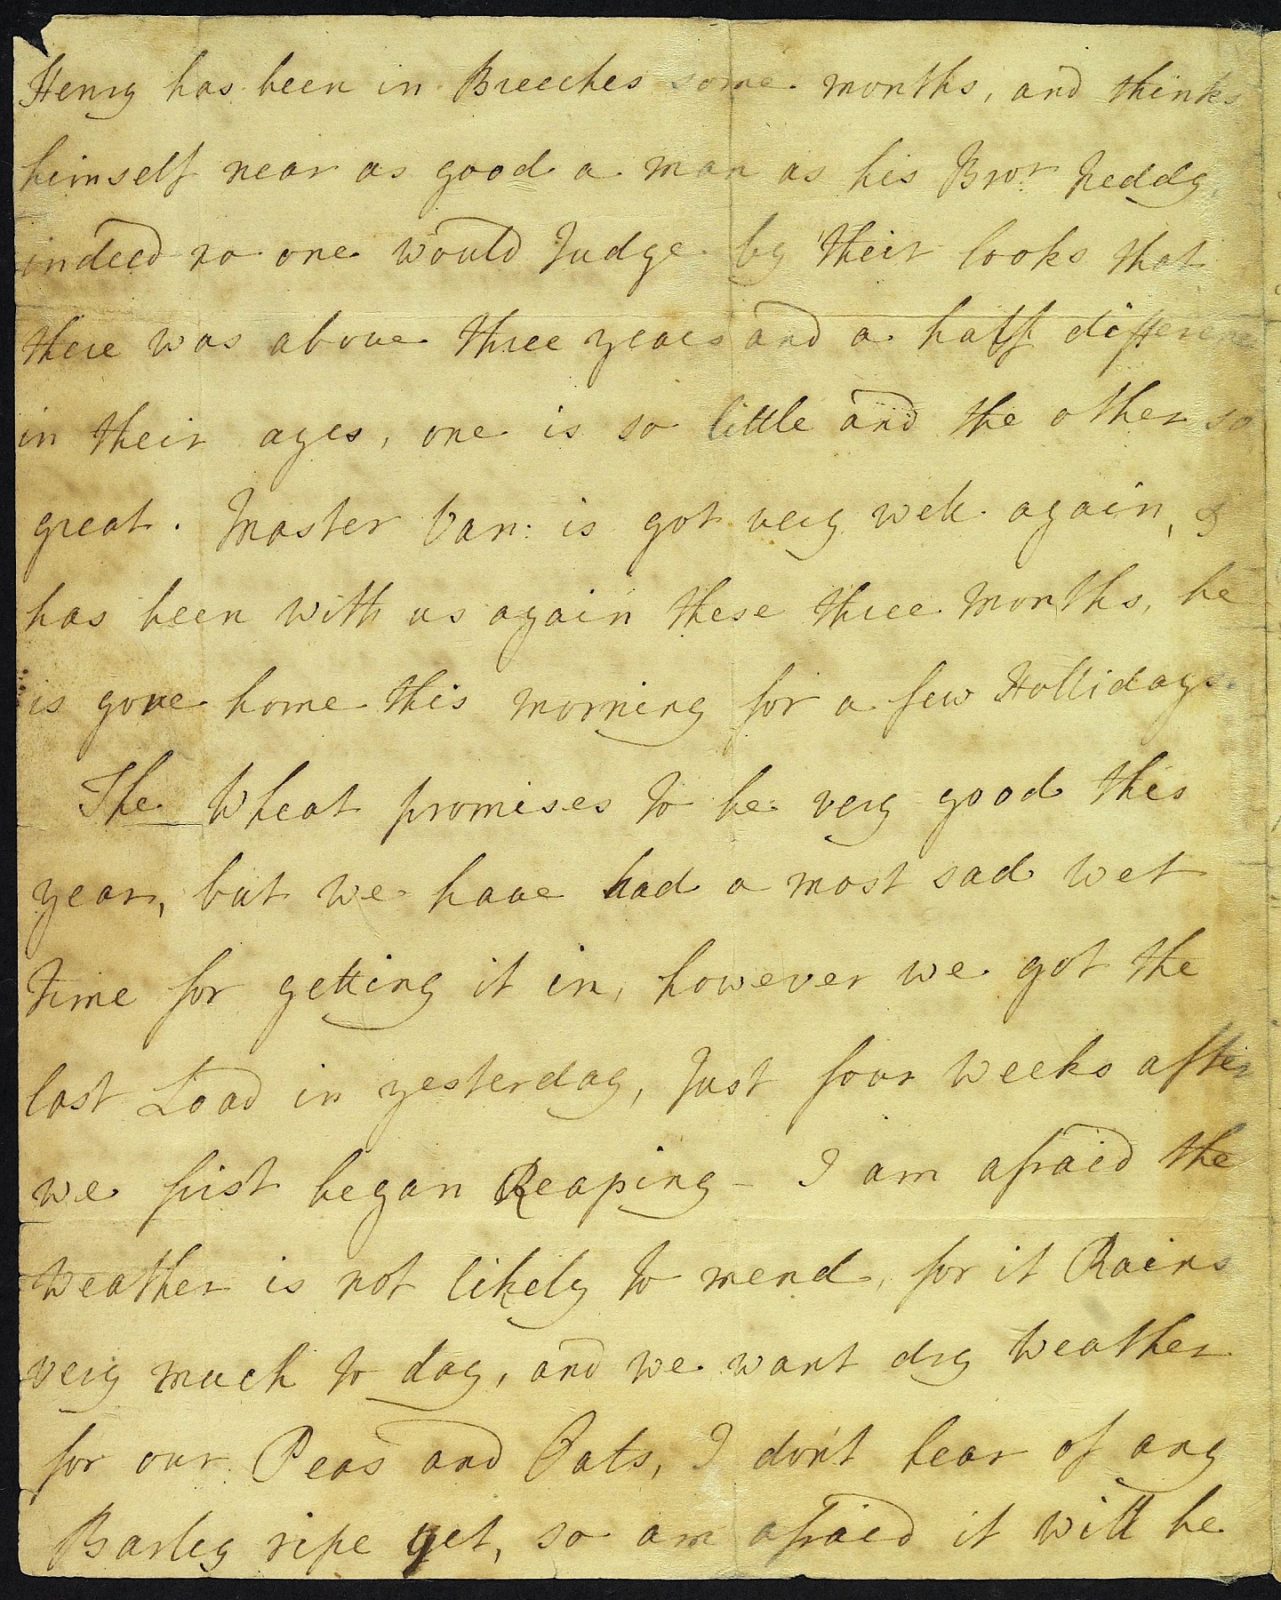 Henry has been in Breeches some months, and thinks
himself near as good a man as his Bror Neddy,
indeed no one would Judge by their looks that
there was above three years and a half difference
in their ages, one is so little and the other so
great. Master Van: is got very well again, &
has been with us again these three Months, he
is gone home this morning for a few Hollidays.
The Wheat promises to be very good this
year, but we have had a most sad wet
time for getting it in, however we got the
last Load in yesterday, Just four weeks after
we first began Reaping – I am afraid the
weather is not likely to mend, for it Rains
very much to day, and we want dry weather
for our Peas and Oats, I don't hear of any
Barley ripe yet, so am afraid it will be